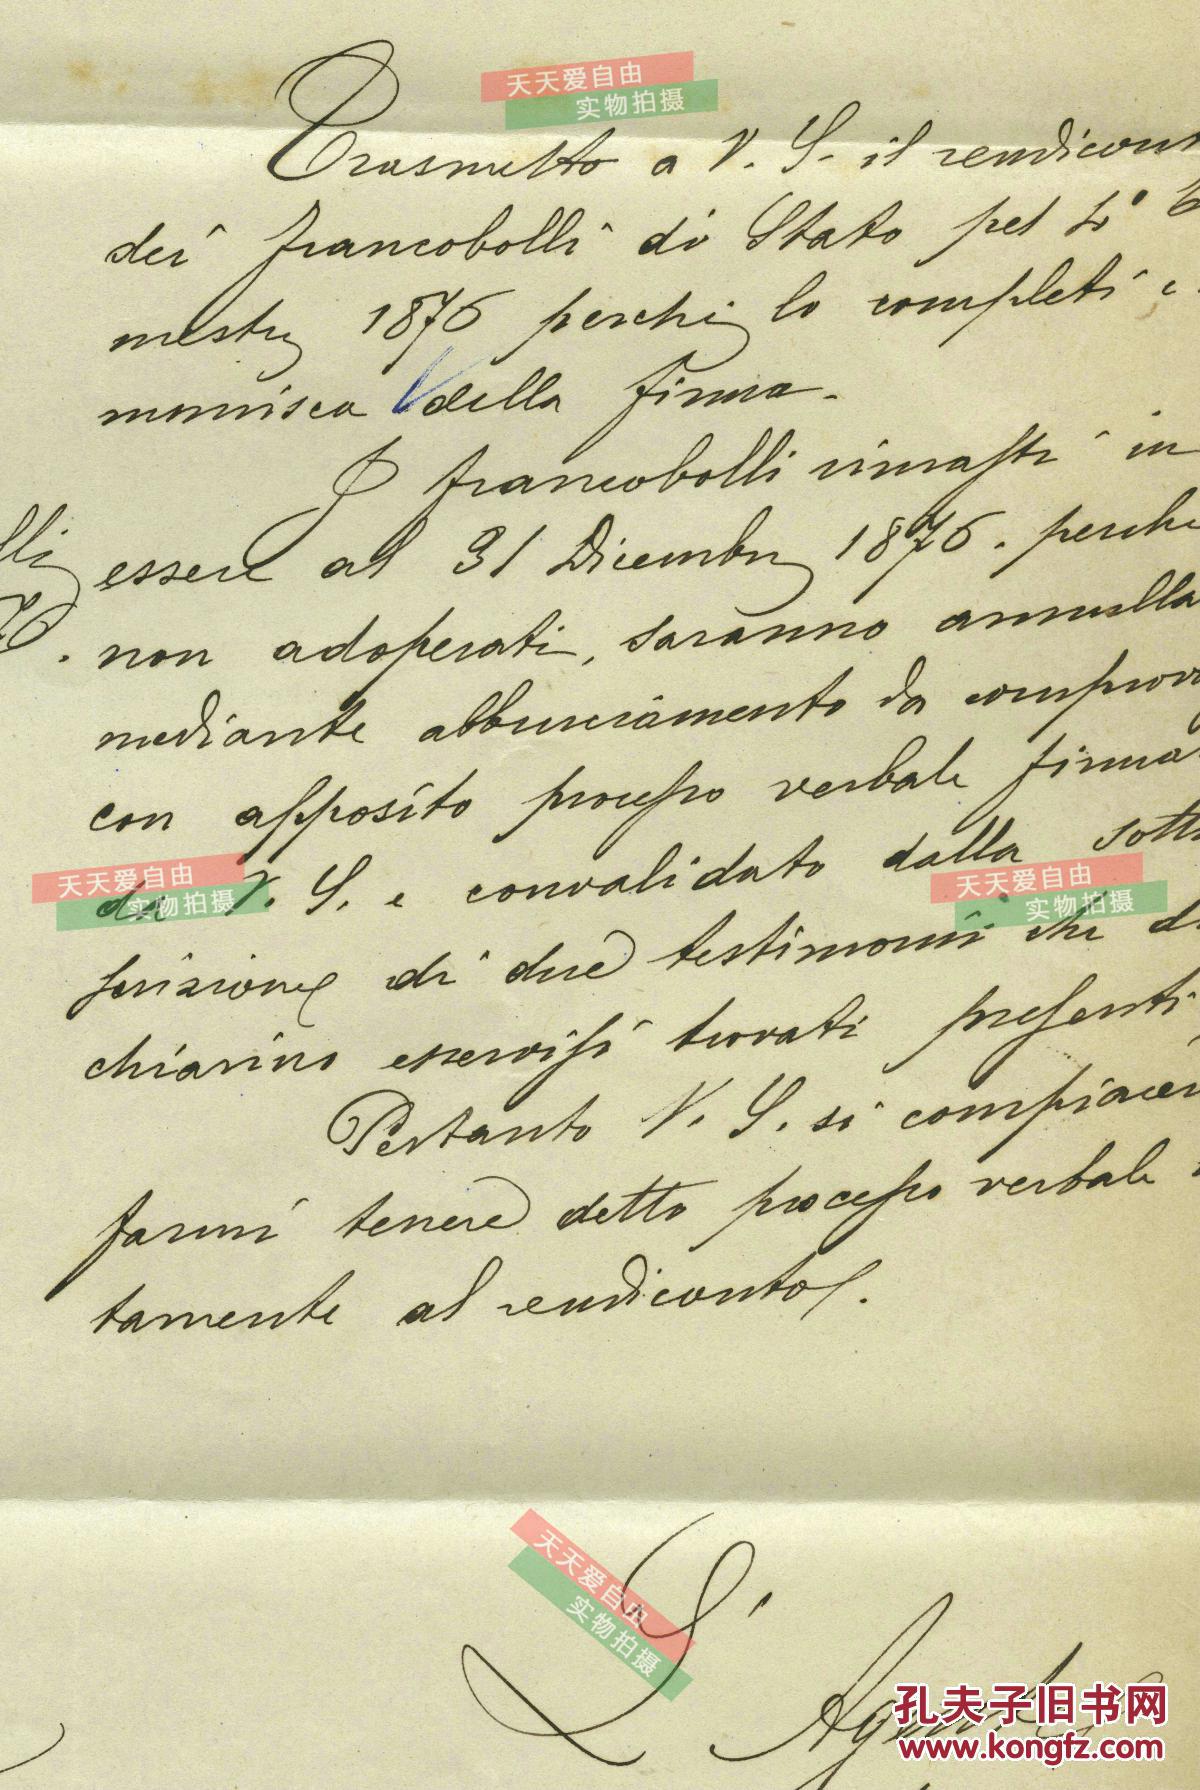 天天爱自由
实物拍摄
Trasmetto a V. S. il rendicont
dei francobolli di Stato pel 4° T
mestre 1876 perchè lo completi e
munisca della firma.
I francobolli rimasti in
essere al 31 Dicembre 1876. perchè
non adoperati, saranno annulla
mediante abbruciamento da comprova
con apposito processo verbale firma
da V. S. e convalidato dalla sotto
scrizione di due testimoni che di
chiarino esservisi trovati presenti
Pertanto V. S. si compiacer
farmi tenere detto processo verbale
tamente al rendiconto.
lli
76.
天天爱自由
实物拍摄
天天爱自由
实物拍摄
天天爱自由
实物拍摄
L' Agente
孔夫子旧书网
www.kongfz.com